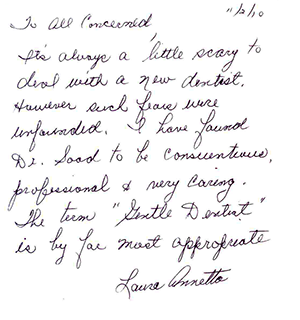 11/2/10
To All Concerned,
It's always a little scary to
deal with a new dentist.
However such fears were
unfounded. I have found
Dr. Sood to be conscientious,
professional & very caring.
The term "Gentle Dentist"
is by far most appropriate
Laura Annetta